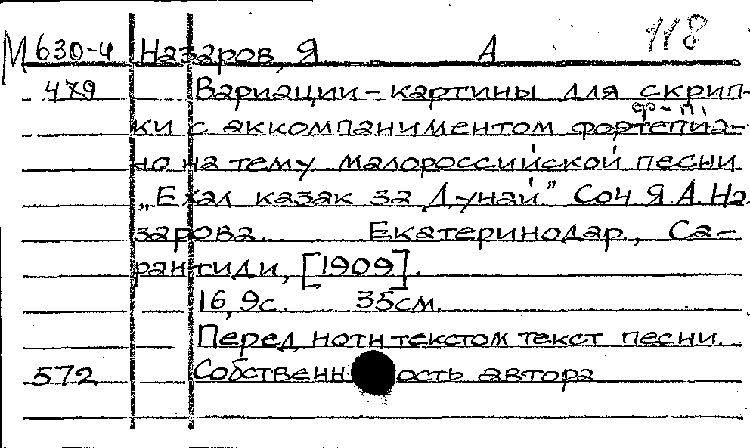 М630-4 Назаров, Я А 118
479 Вариации-картины для скрип-
ф-п.
ки с аккомпаниментом фортепиа-
но на тему малороссийской песни
„Ехал казак за Дунай" Соч Я. А. На
зарова. Екатеринодар, Са-
рантиди, [1909].
16, 9с. 35см.
Перед нотн текстом текст песни.
572 Собственность автора